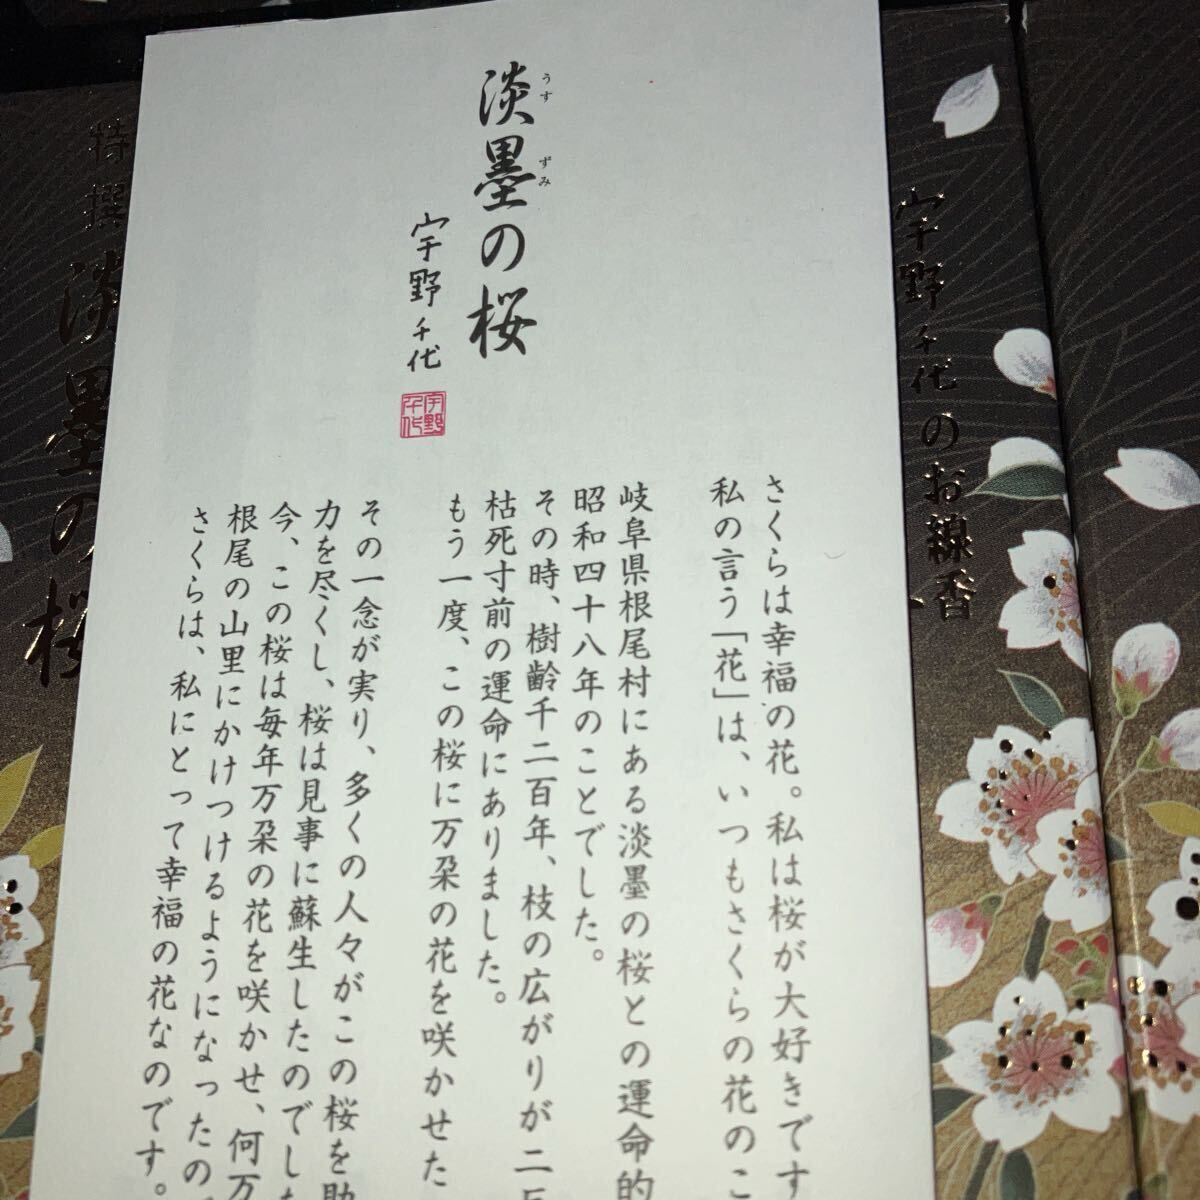 淡墨の桜
うすずみ
宇野千代
宇野千代
さくらは幸福の花。私は桜が大好きです
私の言う「花」は、いつもさくらの花のこ
岐阜県根尾村にある淡墨の桜との運命的
昭和四十八年のことでした。
その時、樹齢千二百年、枝の広がりが二反
枯死寸前の運命にありました。
もう一度、この桜に万朶の花を咲かせた
その一念が実り、多くの人々がこの桜を助
力を尽くし、桜は見事に蘇生したのでした
今、この桜は毎年万朶の花を咲かせ、何万
根尾の山里にかけつけるようになったので
さくらは、私にとって幸福の花なのです。
宇野千代のお線香
特撰
淡墨の桜